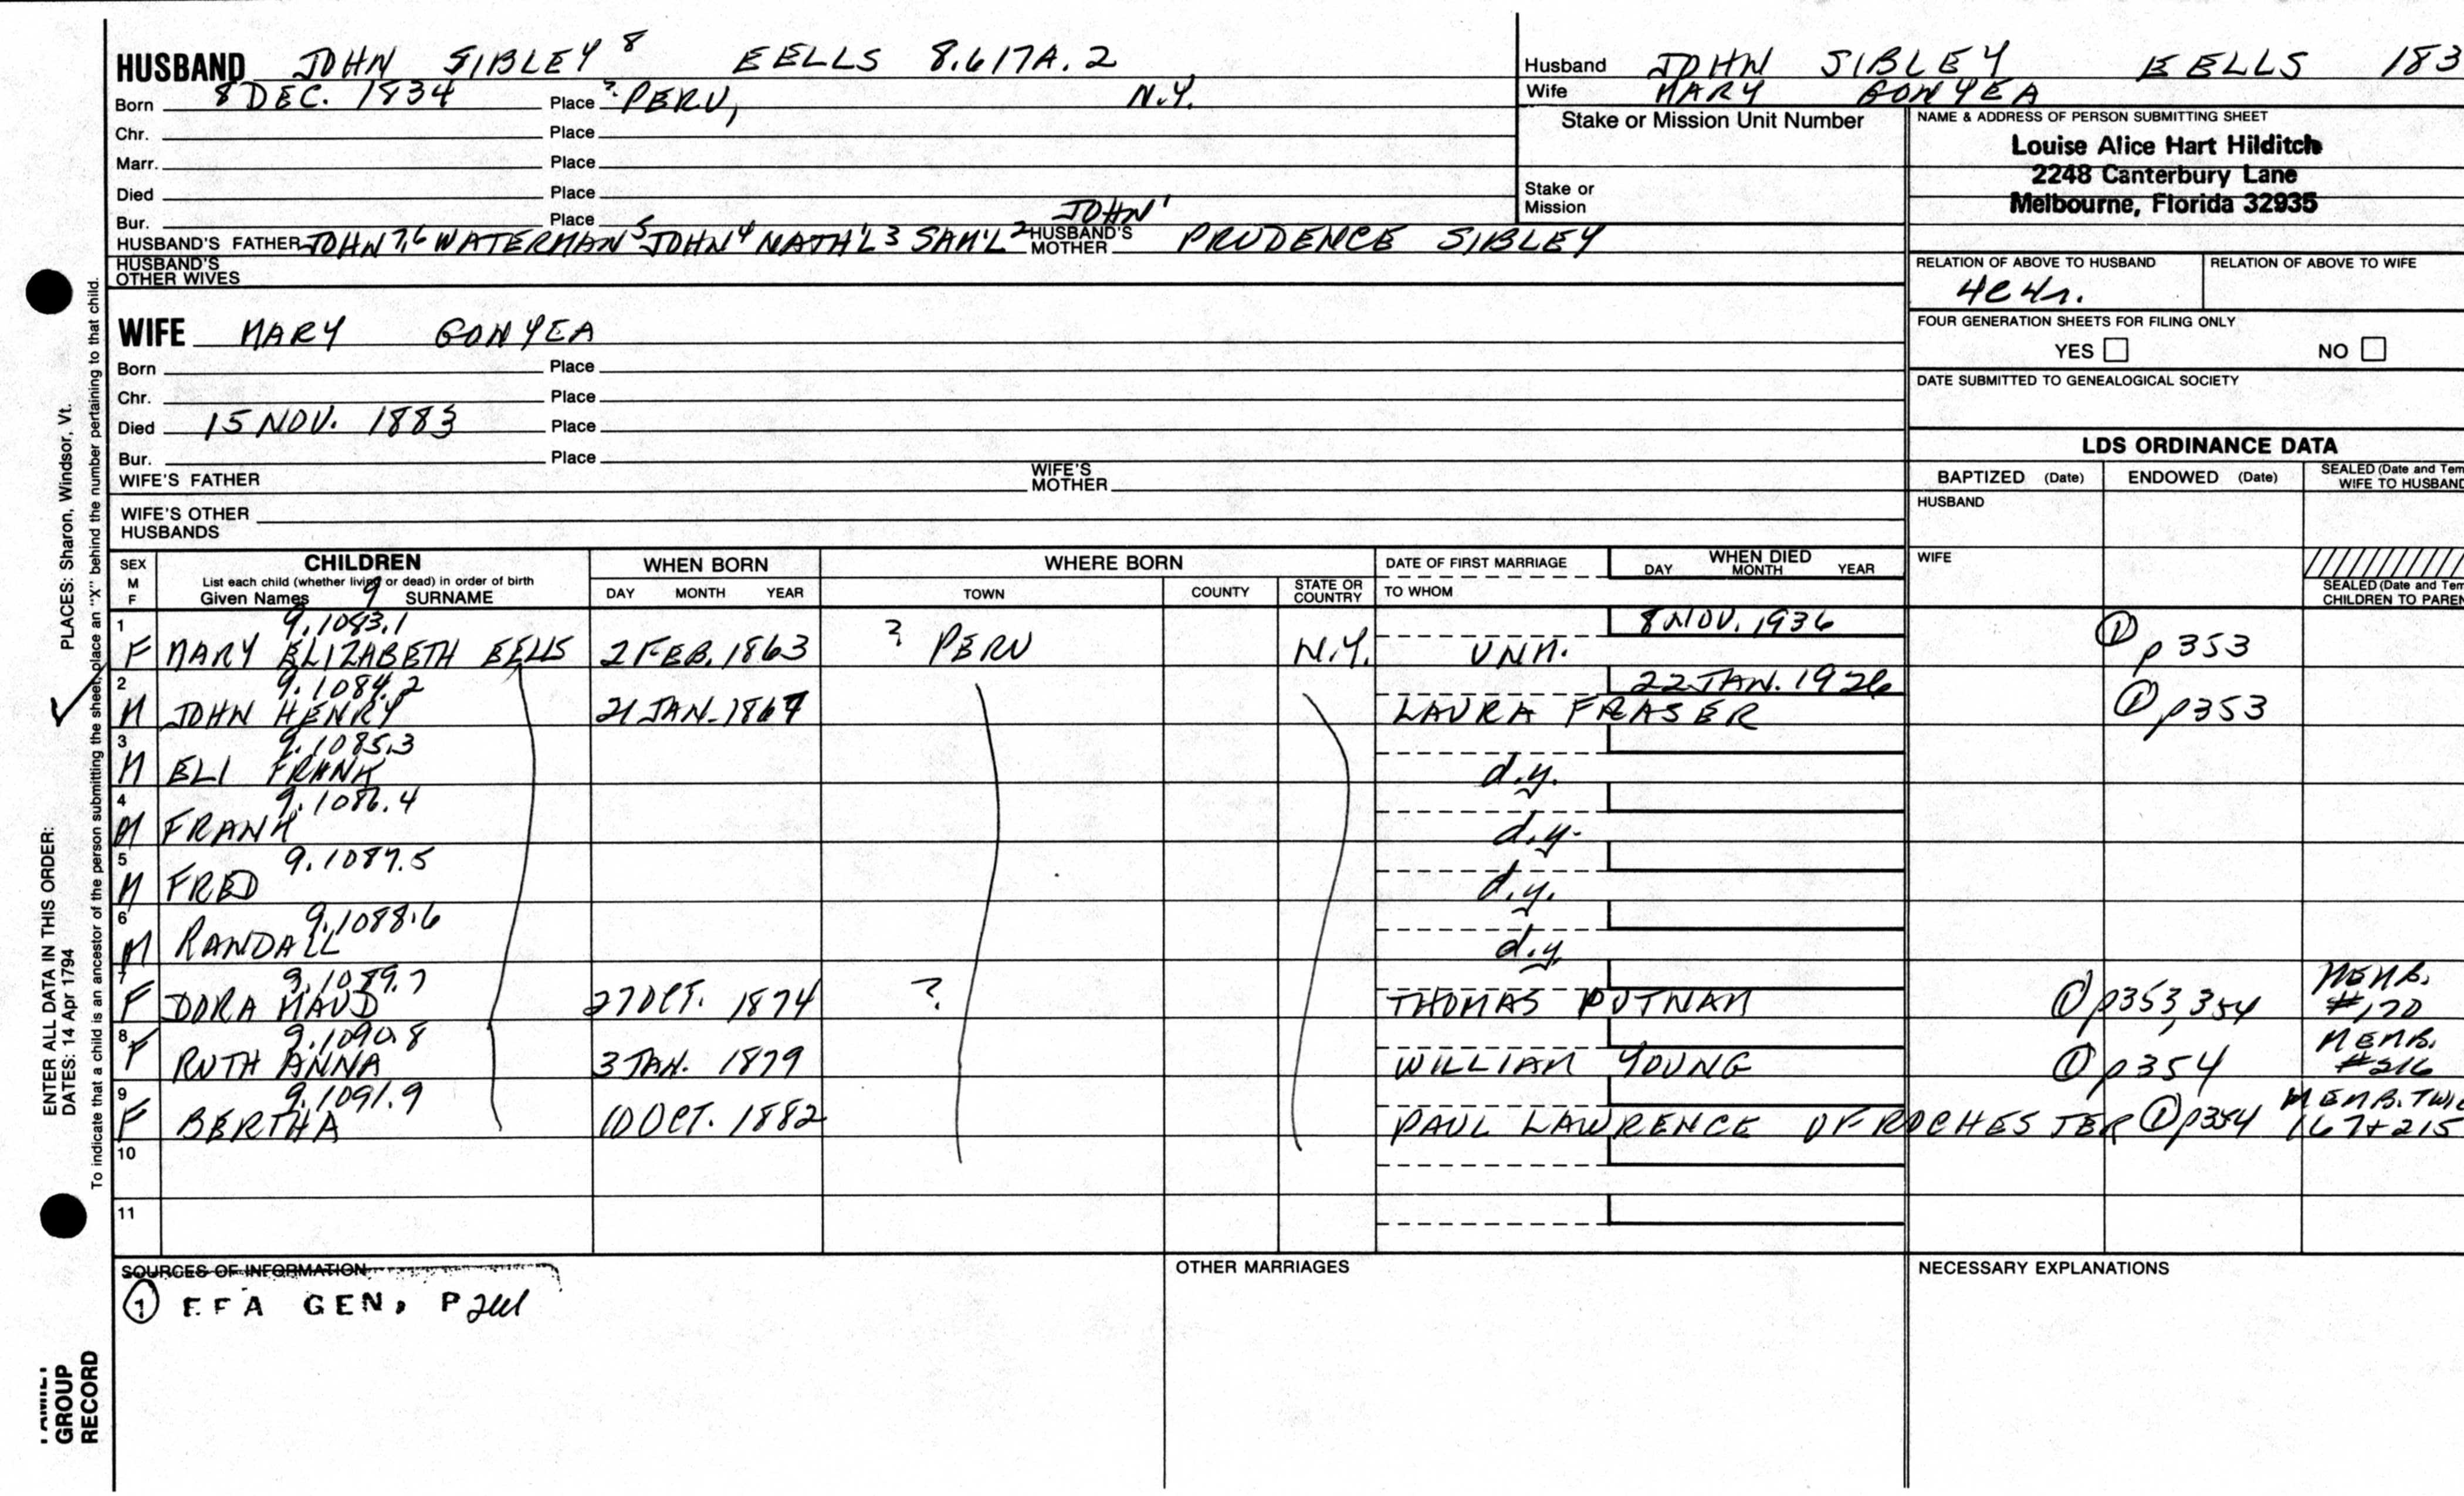 HUSBAND JOHN SIBLEY 8 EELLS 8.617A.2
Born 8 DEC. 1834 Place ? PERU, N.Y.
Chr. Place
Marr. Place
Died Place
Bur. Place
HUSBAND'S FATHER JOHN 7,6 WATERMAN 5 JOHN 4 NATH'L 3 SAM'L 2 JOHN 1 HUSBAND'S MOTHER PRUDENCE SIBLEY
HUSBAND'S OTHER WIVES
Husband JOHN SIBLEY EELLS 183
Wife MARY GONYEA
Stake or Mission Unit Number
Stake or Mission
NAME & ADDRESS OF PERSON SUBMITTING SHEET
Louise Alice Hart Hilditch
2248 Canterbury Lane
Melbourne, Florida 32935
RELATION OF ABOVE TO HUSBAND RELATION OF ABOVE TO WIFE
4c4r.
FOUR GENERATION SHEETS FOR FILING ONLY
YES NO
DATE SUBMITTED TO GENEALOGICAL SOCIETY
WIFE MARY GONYEA
Born Place
Chr. Place
Died 15 NOV. 1883 Place
Bur. Place
WIFE'S FATHER WIFE'S MOTHER
WIFE'S OTHER HUSBANDS
LDS ORDINANCE DATA
BAPTIZED (Date) ENDOWED (Date) SEALED (Date and Tem
WIFE TO HUSBAND
HUSBAND
WIFE
SEALED (Date and Tem
CHILDREN TO PAREN
SEX M F CHILDREN WHEN BORN WHERE BORN DATE OF FIRST MARRIAGE WHEN DIED
List each child (whether living or dead) in order of birth
Given Names 9 SURNAME DAY MONTH YEAR TOWN COUNTY STATE OR COUNTRY TO WHOM DAY MONTH YEAR
1 9.1083.1 8 NOV. 1936
F MARY ELIZABETH EELLS 2 FEB. 1863 ? PERU N.Y. UNM. ① p353
2 9.1084.2 22 JAN. 1926
M JOHN HENRY 21 JAN. 1867 LAURA FRASER ① p353
3 9.1085.3
M ELI FRANK d.y.
4 9.1086.4
M FRANK d.y.
5 9.1087.5
M FRED d.y.
6 9.1088.6
M RANDALL d.y.
7 9.1089.7 MEMB.
F DORA MAUD 27 OCT. 1874 ? THOMAS PUTNAM ① p353,354 #170
8 9.1090.8 MEMB.
F RUTH ANNA 3 JAN. 1879 WILLIAM YOUNG ① p354 #216
9 9.1091.9 MEMB. TWIC
F BERTHA 10 OCT. 1882 PAUL LAWRENCE OF ROCHESTER ① p354 167+215
10
11
SOURCES OF INFORMATION OTHER MARRIAGES NECESSARY EXPLANATIONS
① EFA GEN, P 241
PLACES: Sharon, Windsor, Vt.
To indicate that a child is an ancestor of the person submitting the sheet, place an "X" behind the number pertaining to that child.
ENTER ALL DATA IN THIS ORDER:
DATES: 14 Apr 1794
FAMILY GROUP RECORD